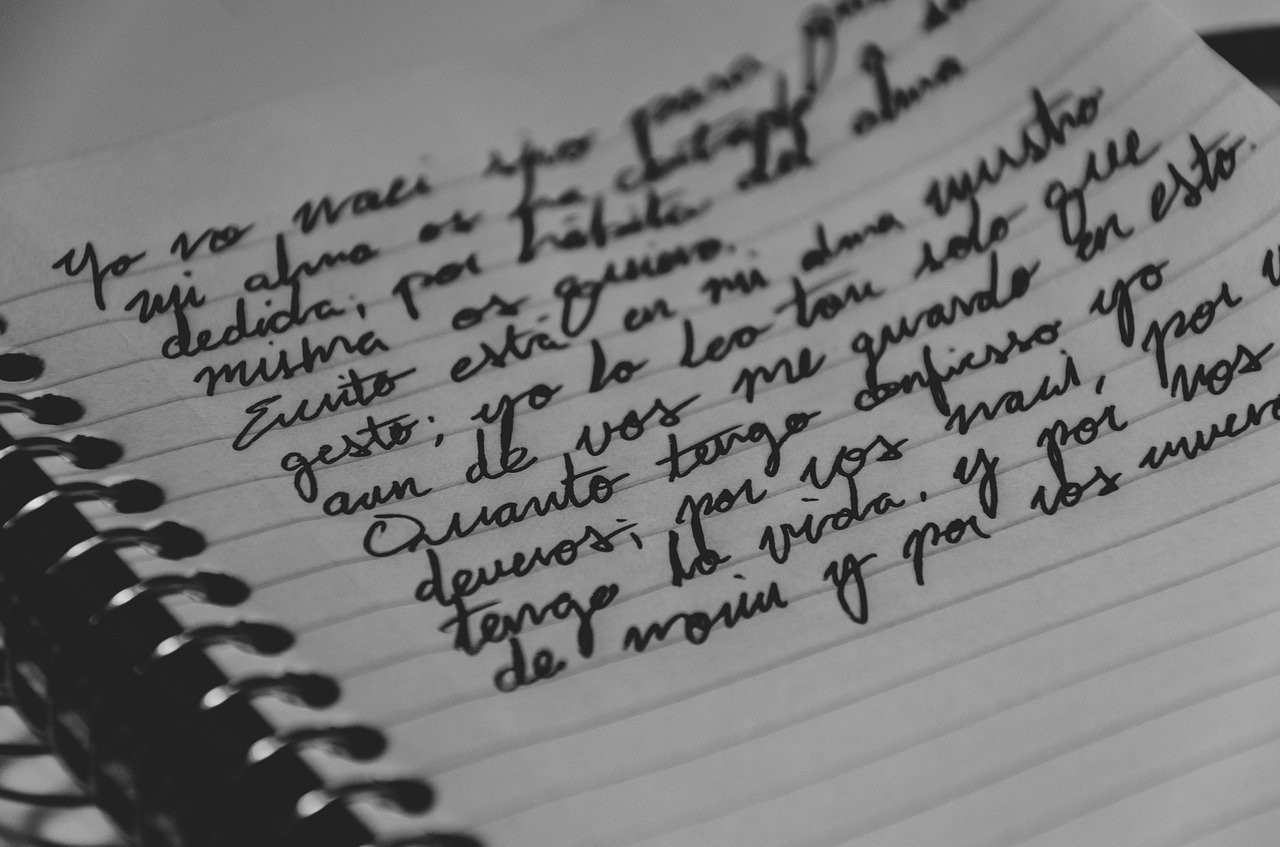 Yo no naci sino para
mi alma os ha
dedida; por hábito del alma
misma os quiero.
Escrito está en mi alma vuestro
gesto; yo lo leo tan solo que
aun de vos me guardo en esto.
Quanto tengo confiesso yo
deveros; por vos naci, por
tengo la vida, y por vos
de morir y por vos muero